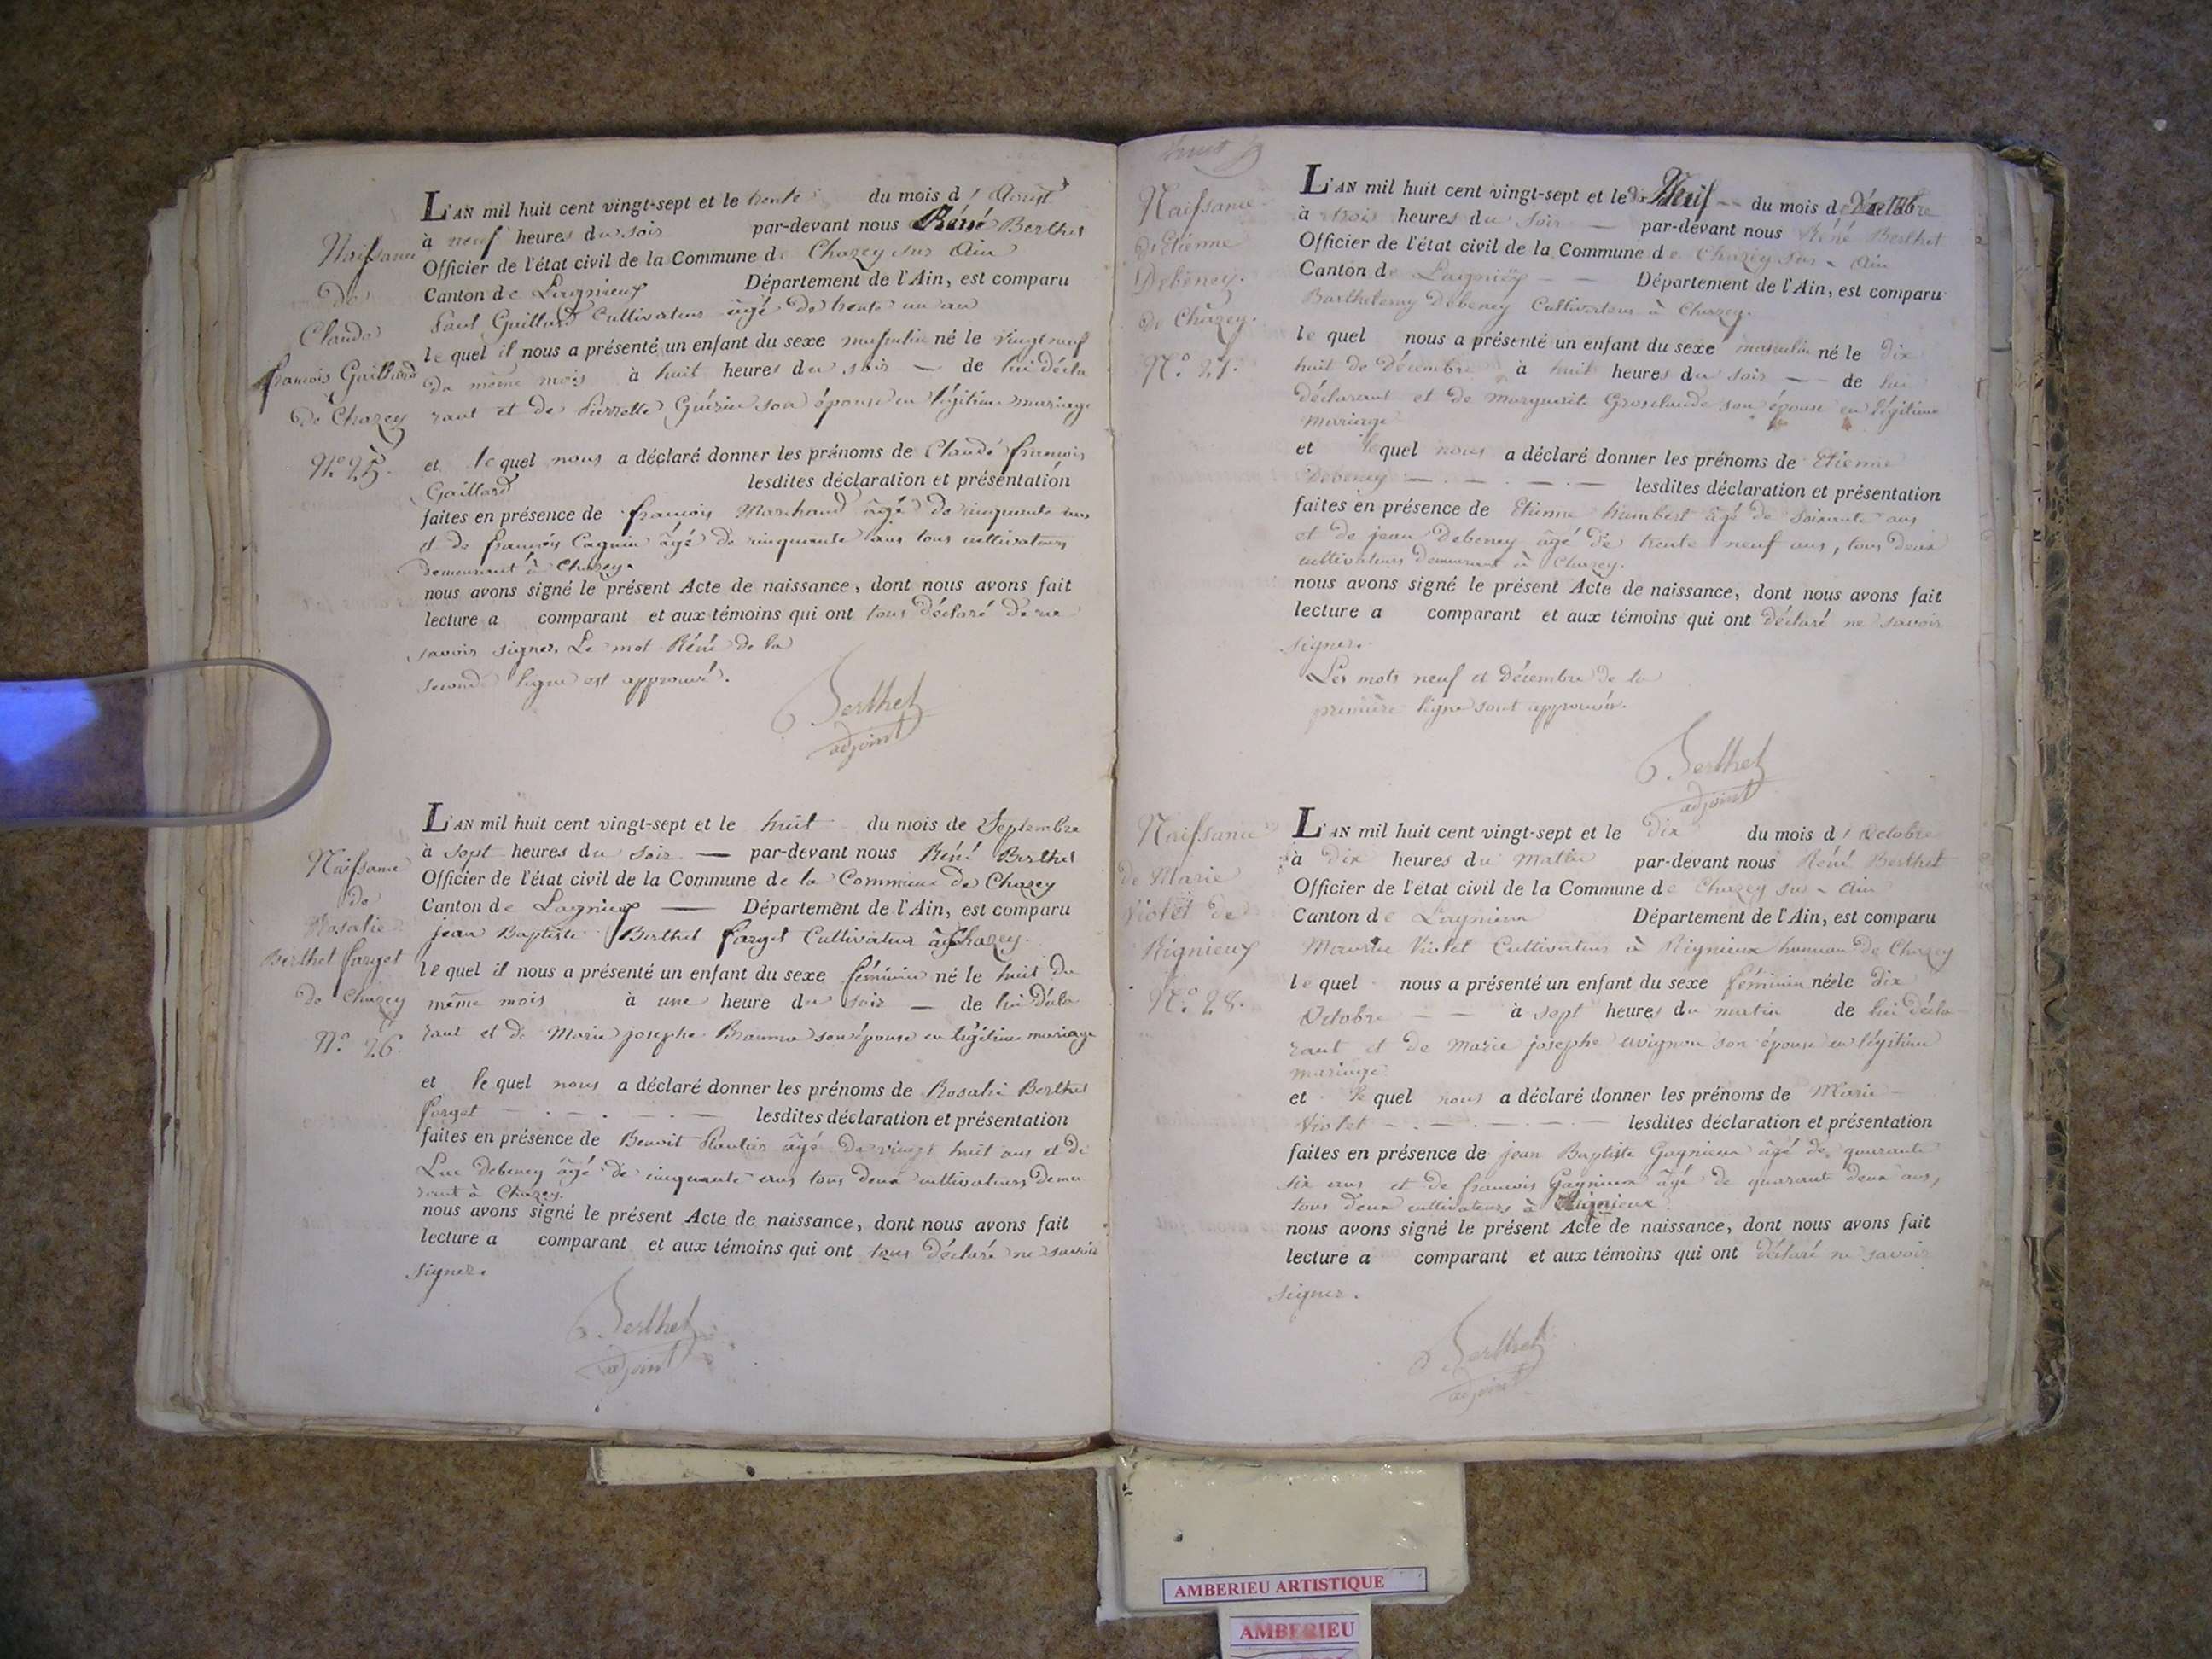 Naissance
de
Claude
françois Gaillard
de Chazey
N.º 25.
L'AN mil huit cent vingt-sept et le trente du mois d'Aoust
à neuf heures du soir par-devant nous Réné Berthet
Officier de l'état civil de la Commune de Chazey sur Ain
Canton de Lagnieux Département de l'Ain, est comparu
Paul Gaillard Cultivateur âgé de trente un an
le quel il nous a présenté un enfant du sexe masculin né le vingt neuf
du même mois à huit heures du soir — de lui décla
rant et de Pierrette Guérin son épouse en légitime mariage
et le quel nous a déclaré donner les prénoms de Claude françois
Gaillard lesdites déclaration et présentation
faites en présence de françois Marchand âgé de cinquante ans
et de françois Cagnin âgé de cinquante ans tous cultivateurs
demeurant à Chazey.
nous avons signé le présent Acte de naissance, dont nous avons fait
lecture a comparant et aux témoins qui ont tous déclaré de ne
savoir signer. Le mot Réné de la
seconde ligne est approuvé.
Berthet
adjoint
Naissance
de
Rosalie
Berthet farget
de Chazey
N.º 26.
L'AN mil huit cent vingt-sept et le huit du mois de Septembre
à sept heures du soir — par-devant nous Réné Berthet
Officier de l'état civil de la Commune de la Commune de Chazey
Canton de Lagnieux — Département de l'Ain, est comparu
Jean Baptiste Berthet farget Cultivateur à Chazey.
le quel il nous a présenté un enfant du sexe féminin né le huit du
même mois à une heure du soir — de lui décla
rant et de Marie josephe son épouse en légitime mariage
et le quel nous a déclaré donner les prénoms de Rosalie Berthet
farget — . — . — . — lesdites déclaration et présentation
faites en présence de Benoit âgé de vingt huit ans et de
Luc Debeney âgé de cinquante ans tous deux cultivateurs demeu
rant à Chazey.
nous avons signé le présent Acte de naissance, dont nous avons fait
lecture a comparant et aux témoins qui ont tous déclaré ne savoir
signer.
Berthet
adjoint
huit
Naissance
d'Etienne
Debeney.
de Chazey.
N.º 27.
L'AN mil huit cent vingt-sept et le dix Neuf -- du mois de Décembre
à trois heures du soir — par-devant nous Réné Berthet
Officier de l'état civil de la Commune de Chazey sur - Ain
Canton de Lagnieu — — Département de l'Ain, est comparu
Barthelemy Debeney Cultivateur à Chazey.
le quel nous a présenté un enfant du sexe masculin né le dix
huit de Décembre à huit heures du soir — — de lui
déclarant et de marguerite Grosclaude son épouse en légitime
mariage
et lequel nous a déclaré donner les prénoms de Etienne
Debeney — . — . — . — lesdites déclaration et présentation
faites en présence de Etienne humbert âgé de soixante ans
et de jean Debeney âgé de trente neuf ans, tous deux
cultivateurs demeurant à Chazey.
nous avons signé le présent Acte de naissance, dont nous avons fait
lecture a comparant et aux témoins qui ont déclaré ne savoir
signer.
Les mots neuf et Décembre de la
première ligne sont approuvés.
Berthet
adjoint
Naissance
de Marie
Violet de
Rignieux
N.º 28.
L'AN mil huit cent vingt-sept et le dix du mois d'Octobre
à dix heures du matin par-devant nous Réné Berthet
Officier de l'état civil de la Commune de Chazey sur - Ain
Canton de Lagnieux Département de l'Ain, est comparu
Violet Cultivateur à Rignieux hameau de Chazey
le quel nous a présenté un enfant du sexe féminin née le dix
Octobre — — à sept heures du matin de lui décla
rant et de Marie josephe avignon son épouse en légitime
mariage
et le quel nous a déclaré donner les prénoms de Marie
Violet — . — . — . — lesdites déclaration et présentation
faites en présence de jean Baptiste Gagnieux âgé de quarante
six ans et de francois Gagnieux âgé de quarante deux ans,
tous deux cultivateurs à Rignieux
nous avons signé le présent Acte de naissance, dont nous avons fait
lecture a comparant et aux témoins qui ont déclaré ne savoir
signer.
Berthet
adjoint
AMBERIEU ARTISTIQUE
AMBERIEU